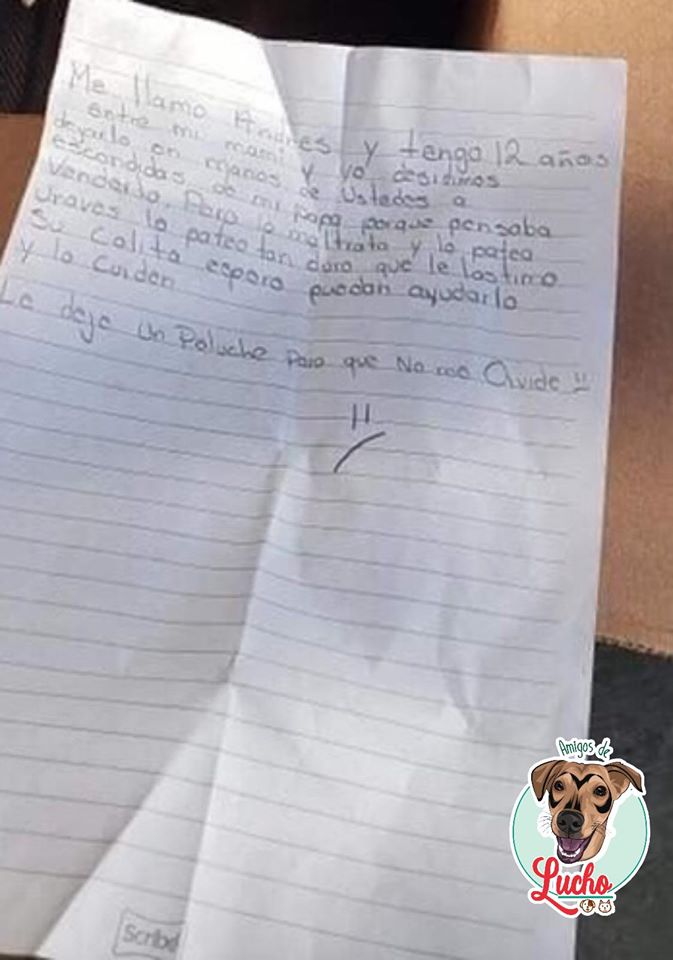 Me llamo Andres y tengo 12 años
entre mi mami y yo desidimos
dejarlo en manos de Ustedes a
escondidas de mi papa porque pensaba
Venderlo. Pero lo maltrata y lo patea
Unaves lo pateo tan duro que le lastimo
Su Colita espero puedan ayudarlo
y lo Cuiden
Le deje Un Peluche para que No me Olvide
Amigos de
Lucho
Scribe